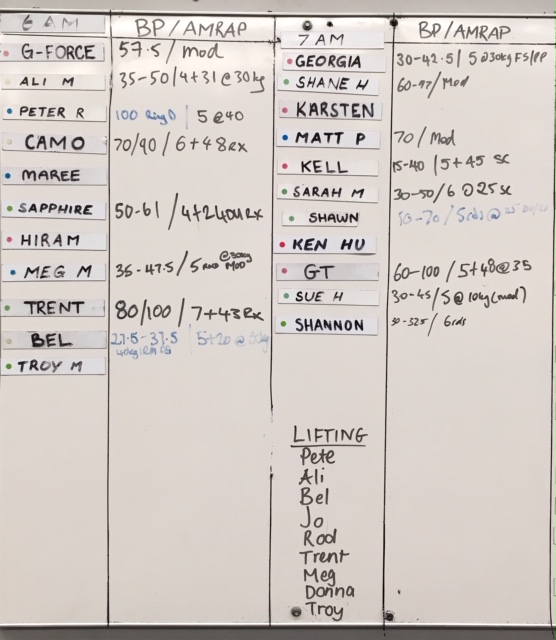 6 AM BP/AMRAP
G-FORCE 57.5/mod
ALI M 35-50/4+31@30kg
PETER R 100 Ring D | 5@40
CAMO 70/90/6+48Rx
MAREE
SAPPHIRE 50-61/4+240m Rx
HIRAM
MEG M 35-47.5/5 @30kg MOD
TRENT 80/100/7+43Rx
BEL 27.5-37.5 | 5+20@30kg
40kg 1RM FS
TROY M
7 AM BP/AMRAP
GEORGIA 30-42.5 | 5@30kg FS/PP
SHANE H 60-97/Mod
KARSTEN
MATT P 70/Mod
KELL 15-40 | 5+45 SC
SARAH M 30-50/6@25 sc
SHAWN 50-70/5rds@35
KEN HU
GT 60-100/5+48@35
SUE H 30-45/5@10kg(mod)
SHANNON 30-32.5/6rds
LIFTING
Pete
Ali
Bel
Jo
Rod
Trent
Meg
Donna
Troy